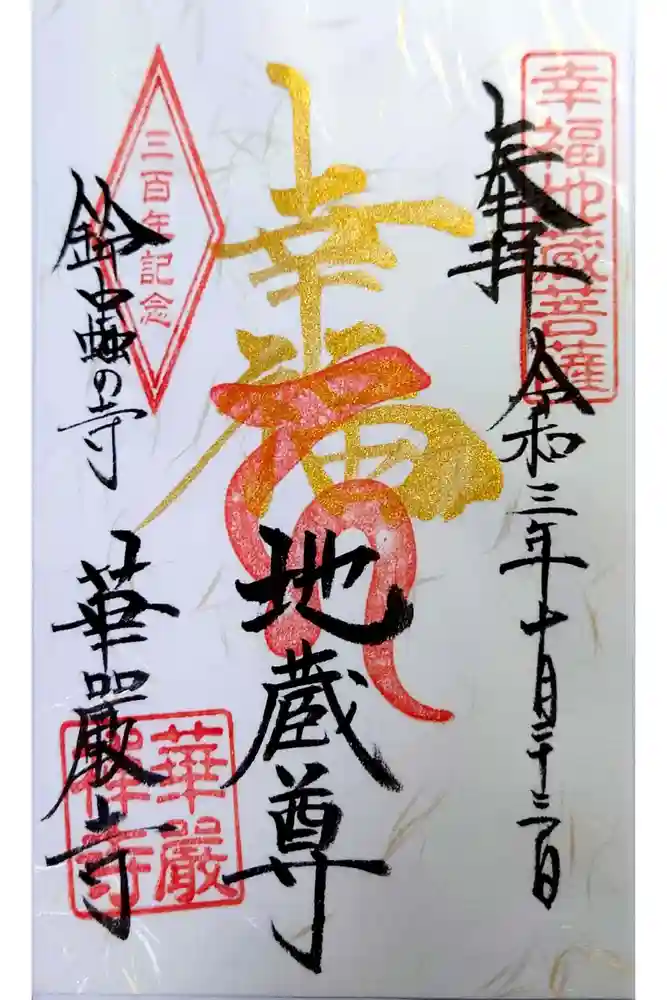 幸福地蔵菩薩
奉拝
令和三年十月二十三日
幸福
地蔵尊
三百年記念
鈴虫の寺
華厳寺
華嚴
禅寺